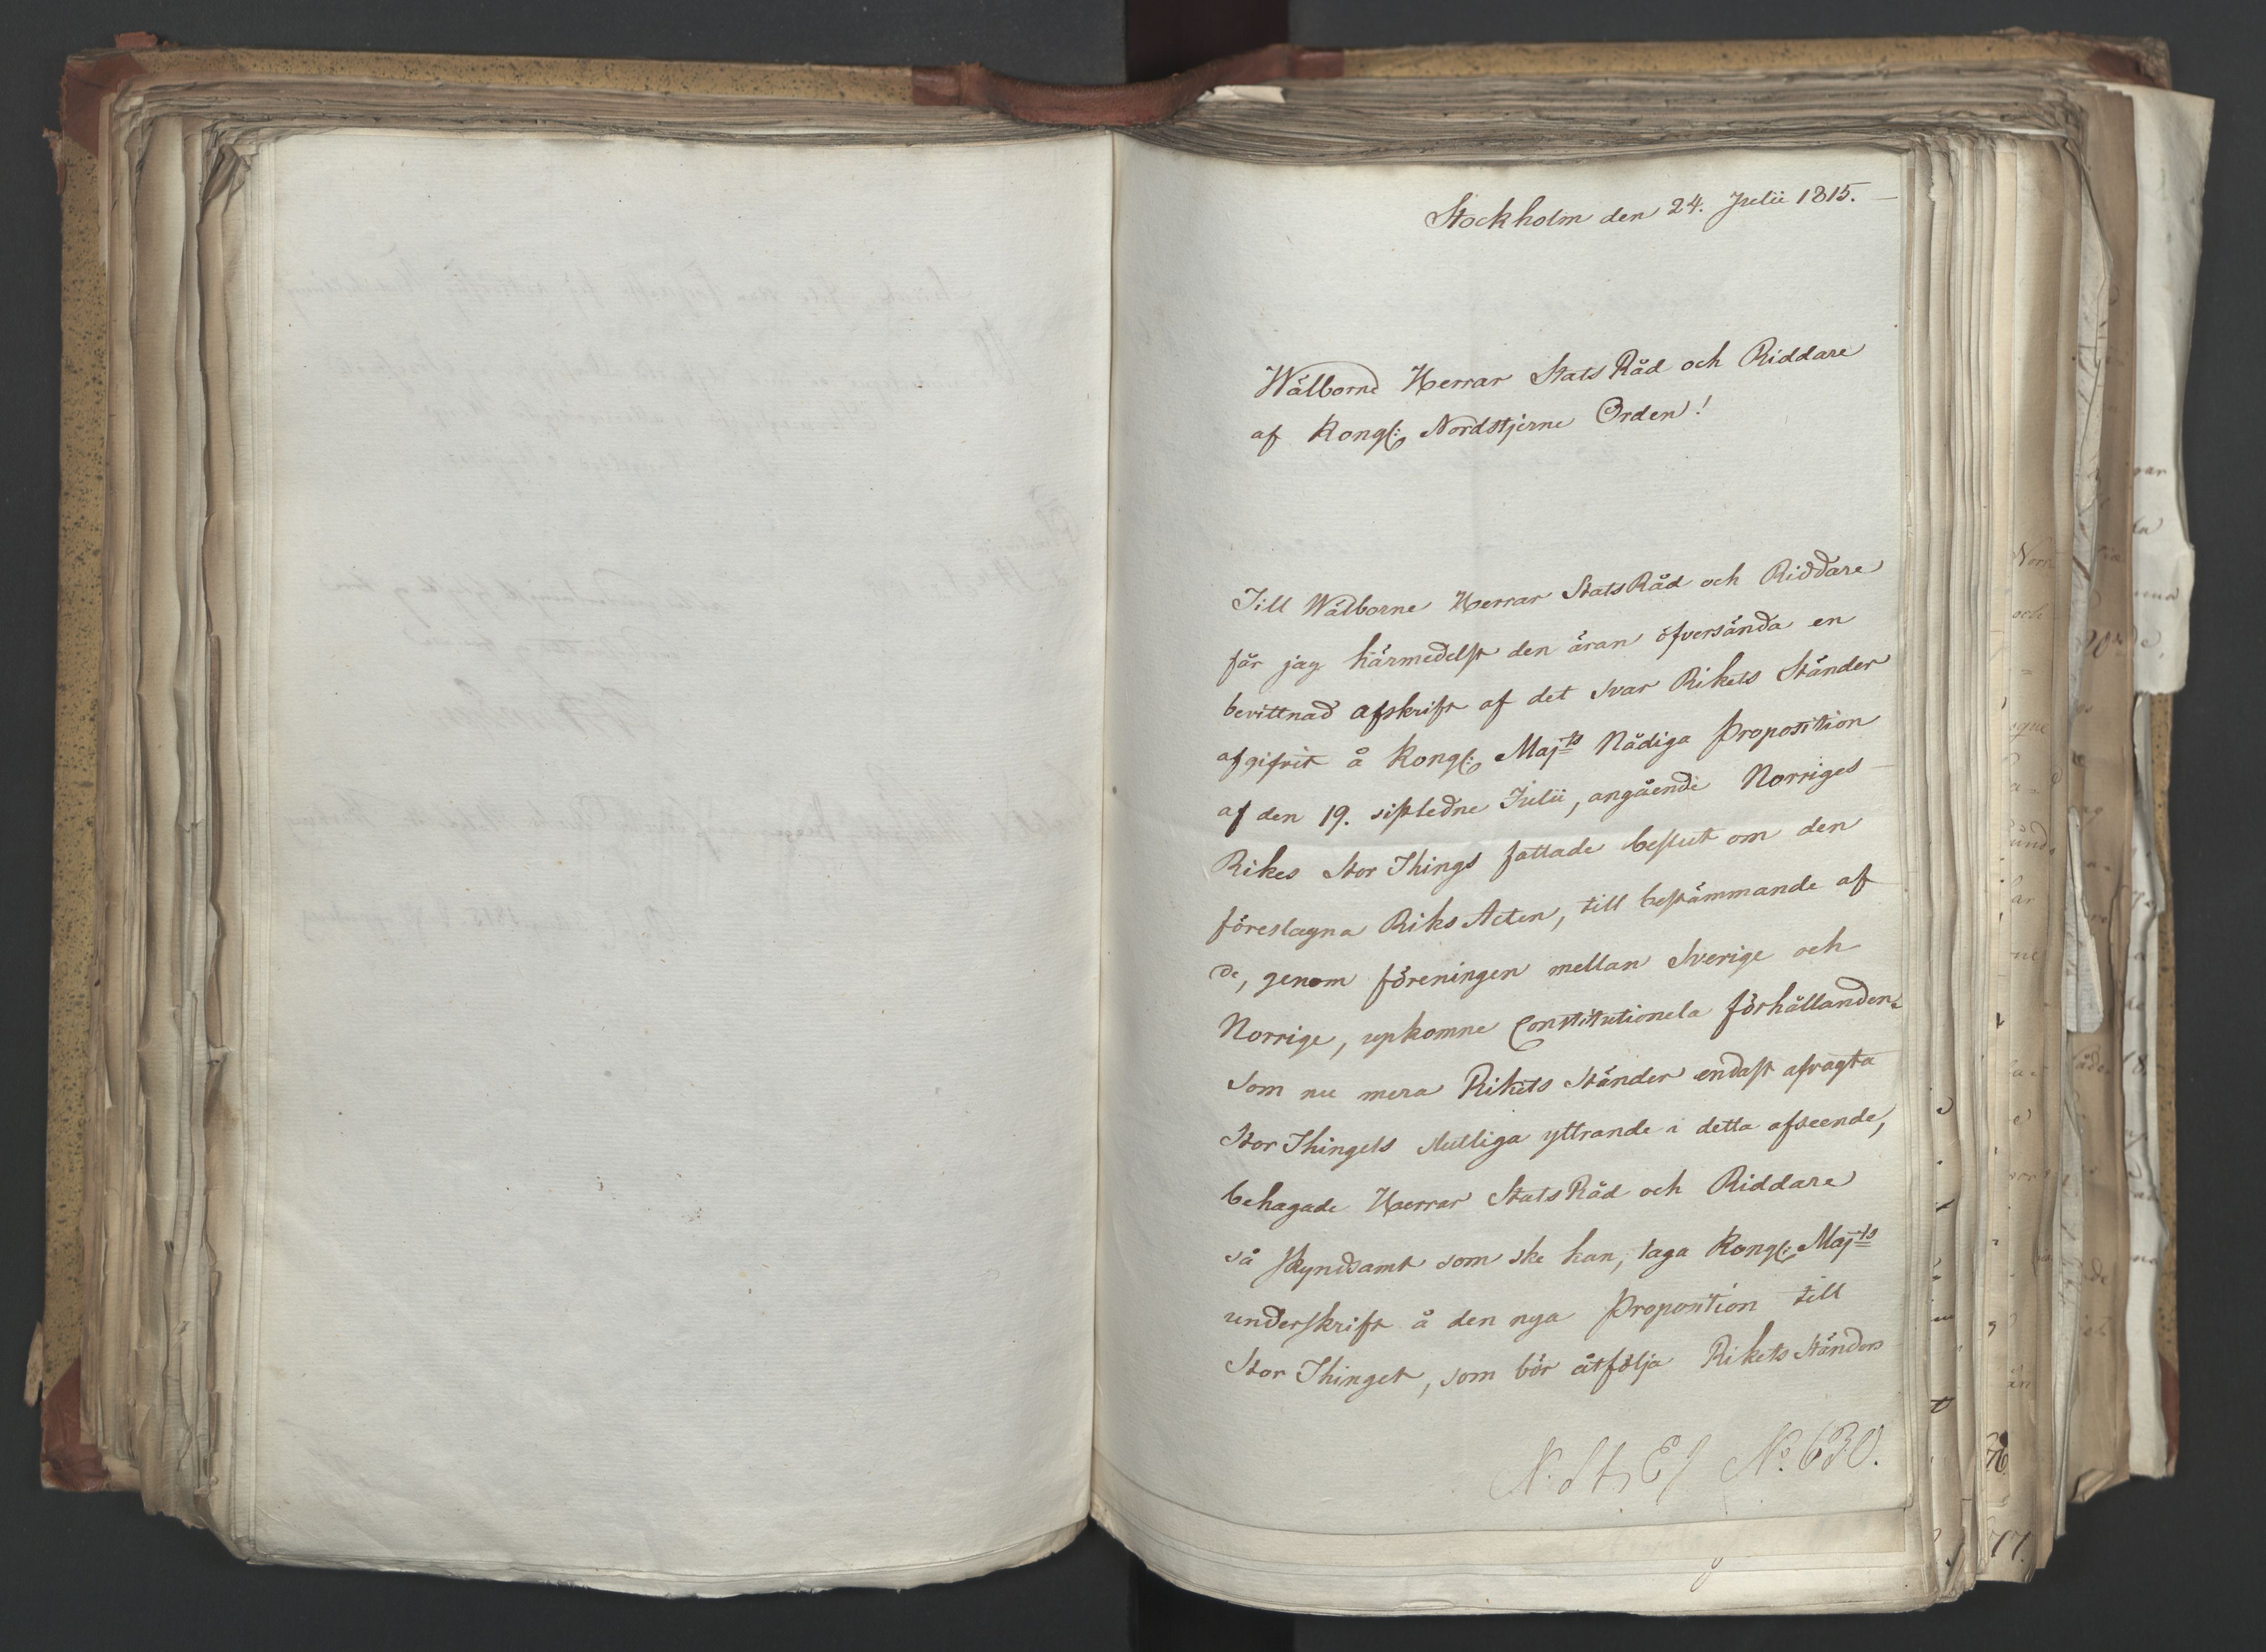 Stockholm den 24. Julii 1815.
Wälborne Herrar Stats Råd och Riddare
af Kongl: Nordstjerne Orden!
Till Wälborne Herrar Stats Råd och Riddare
får jag härmedelst den äran öfversända en
bevittnad afskrift af det svar Rikets Ständer
afgifvit å Kongl: Maj:ts Nådiga Proposition
af den 19. sistledne Julii, angående Norriges
Rikes Stor Things fattade beslut om den
föreslagna Riks Acten, till bestämmande af
de, genom föreningen mellan Sverige och
Norrige, upkomne Constitutionela förhållanden.
Som nu mera Rikets Ständer endast afvagta
Stor Thingets slutliga yttrande i detta afseende,
behagade Herrar Stats Råd och Riddare
så skyndsamt som ske kan, taga Kongl: Maj:ts
underskrift å den nya Proposition till
Stor Thinget, som bör åtfölja Rikets Ständers
No. 630.